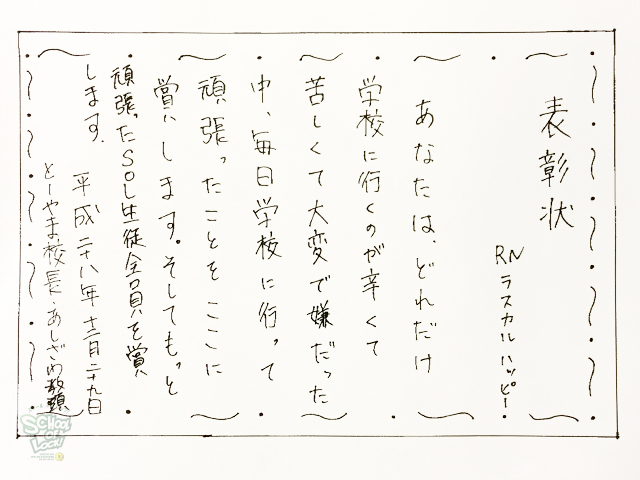 表彰状
RN ラスカルハッピー
あなたは、どれだけ
学校に行くのが辛くて
苦しくて大変で嫌だった
中、毎日学校に行って
頑張ったことをここに
賞します。そしてもっと
頑張ったSOL生徒全員を賞
します。
平成二十八年十二月二十九日
とーやま校長・あしざわ教頭
SCHOOL OF LOCK!